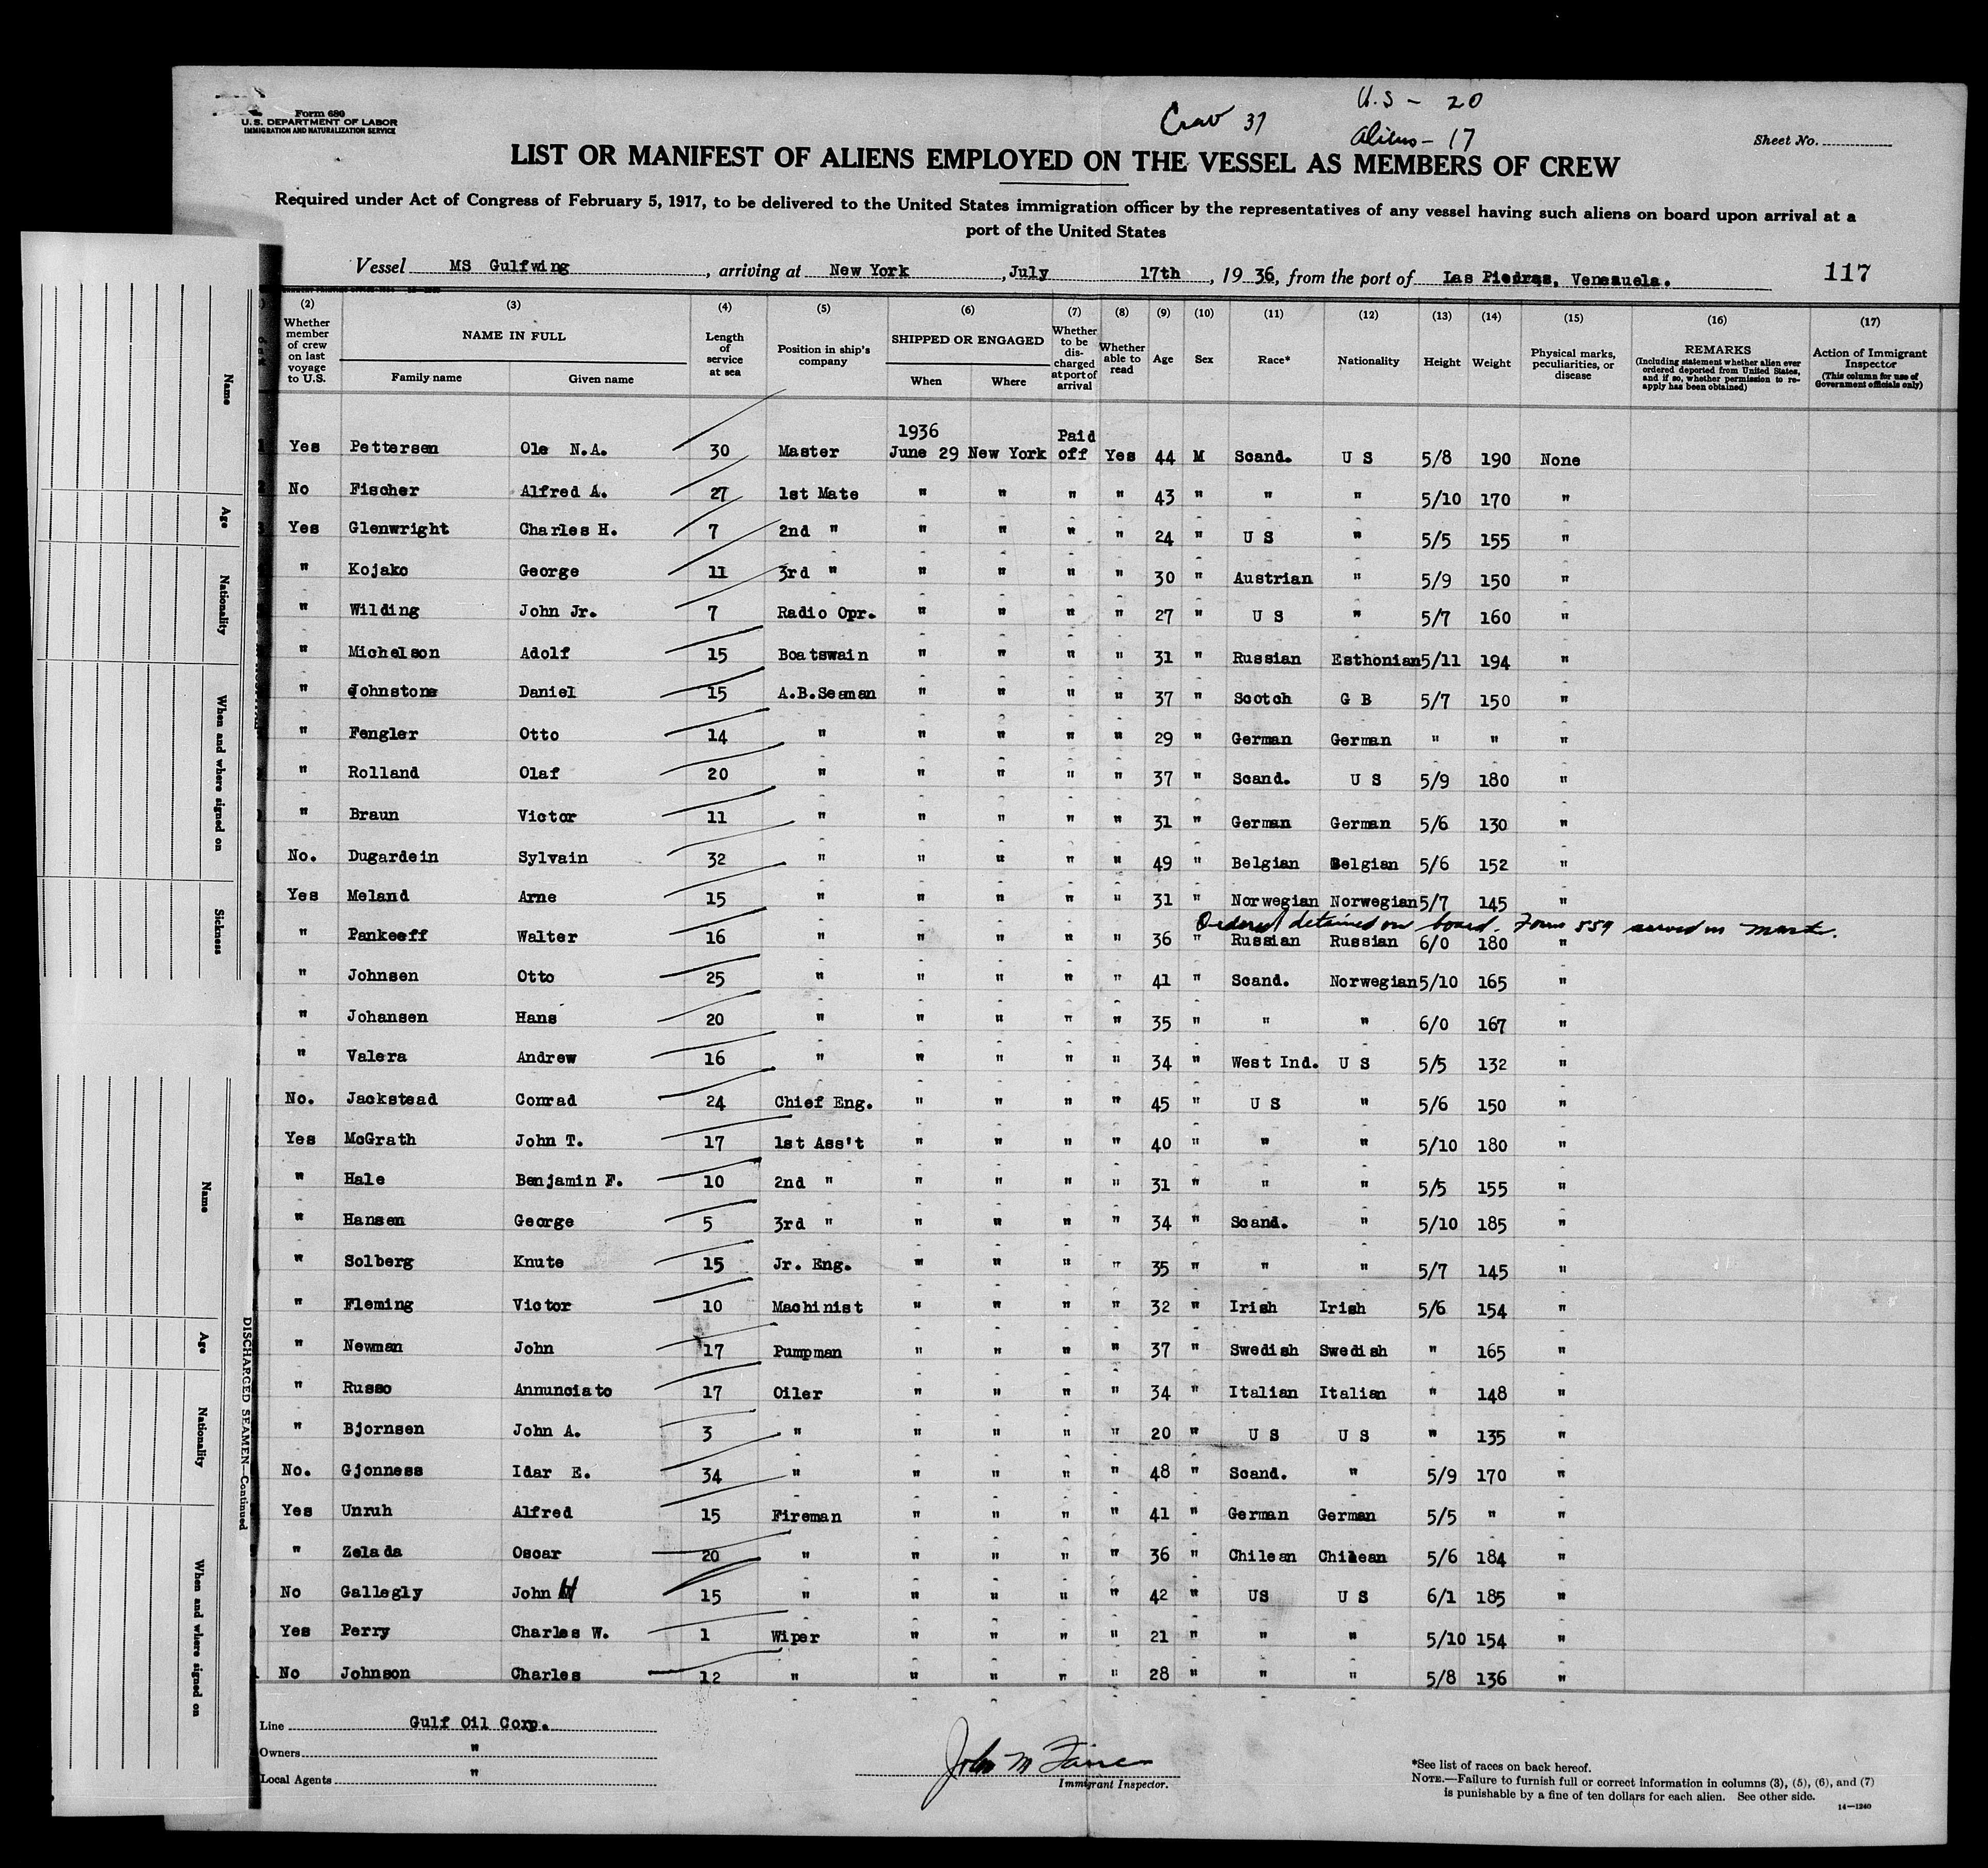 Form 680
U.S. DEPARTMENT OF LABOR
IMMIGRATION AND NATURALIZATION SERVICE
Crew 37
U.S - 20
Aliens - 17
Sheet No.
LIST OR MANIFEST OF ALIENS EMPLOYED ON THE VESSEL AS MEMBERS OF CREW
Required under Act of Congress of February 5, 1917, to be delivered to the United States immigration officer by the representatives of any vessel having such aliens on board upon arrival at a
port of the United States
Vessel MS Gulfwing, arriving at New York, July 17th, 1936, from the port of Las Piedras, Venezuela. 117
(2) Whether member of crew on last voyage to U.S.
(3) NAME IN FULL
Family name Given name
(4) Length of service at sea
(5) Position in ship's company
(6) SHIPPED OR ENGAGED
When Where
(7) Whether to be discharged at port of arrival
(8) Whether able to read
(9) Age
(10) Sex
(11) Race*
(12) Nationality
(13) Height
(14) Weight
(15) Physical marks, peculiarities, or disease
(16) REMARKS (Including statement whether alien ever ordered deported from United States, and if so, whether permission to reapply has been obtained)
(17) Action of Immigrant Inspector (This column for use of Government officials only)
Yes Pettersen Ole N.A. 30 Master 1936 June 29 New York Paid off Yes 44 M Scand. U S 5/8 190 None
No Fischer Alfred A. 27 1st Mate " " " " 43 " " " 5/10 170 "
Yes Glenwright Charles H. 7 2nd " " " " " 24 " U S " 5/5 155 "
" Kojako George 11 3rd " " " " " 30 " Austrian " 5/9 150 "
" Wilding John Jr. 7 Radio Opr. " " " " 27 " U S " 5/7 160 "
" Michelson Adolf 15 Boatswain " " " " 31 " Russian Esthonian 5/11 194 "
" Johnstone Daniel 15 A.B.Seaman " " " " 37 " Scotch G B 5/7 150 "
" Fengler Otto 14 " " " " " 29 " German German " " "
" Rolland Olaf 20 " " " " " 37 " Scand. U S 5/9 180 "
" Braun Victor 11 " " " " " 31 " German German 5/6 130 "
No. Dugardein Sylvain 32 " " " " " 49 " Belgian Belgian 5/6 152 "
Yes Meland Arne 15 " " " " " 31 " Norwegian Norwegian 5/7 145 "
Ordered detained on board. Form 559 served on
" Pankeeff Walter 16 " " " " " 36 " Russian Russian 6/0 180 "
" Johnsen Otto 25 " " " " " 41 " Scand. Norwegian 5/10 165 "
" Johansen Hans 20 " " " " " 35 " " " 6/0 167 "
" Valera Andrew 16 " " " " " 34 " West Ind. U S 5/5 132 "
No. Jackstead Conrad 24 Chief Eng. " " " " 45 " U S " 5/6 150 "
Yes McGrath John T. 17 1st Ass't " " " " 40 " " " 5/10 180 "
" Hale Benjamin F. 10 2nd " " " " " 31 " " " 5/5 155 "
" Hansen George 5 3rd " " " " " 34 " Scand. " 5/10 185 "
" Solberg Knute 15 Jr. Eng. " " " " 35 " " " 5/7 145 "
" Fleming Victor 10 Machinist " " " " 32 " Irish Irish 5/6 154 "
" Newman John 17 Pumpman " " " " 37 " Swedish Swedish " 165 "
" Russo Annunciato 17 Oiler " " " " 34 " Italian Italian " 148 "
" Bjornsen John A. 3 " " " " " 20 " U S U S " 135 "
No. Gjonness Idar E. 34 " " " " " 48 " Scand. " 5/9 170 "
Yes Unruh Alfred 15 Fireman " " " " 41 " German German 5/5 " "
" Zelada Oscar 20 " " " " " 36 " Chilean Chilean 5/6 184 "
No Gallegly John H 15 " " " " " 42 " US U S 6/1 185 "
Yes Perry Charles W. 1 Wiper " " " " 21 " " " 5/10 154 "
No Johnson Charles 12 " " " " " 28 " " " 5/8 136 "
Line Gulf Oil Corp.
Owners "
Local Agents "
John M
Immigrant Inspector.
*See list of races on back hereof.
NOTE.—Failure to furnish full or correct information in columns (3), (5), (6), and (7)
is punishable by a fine of ten dollars for each alien. See other side.
14—1240
Name
Age
Nationality
When and where signed on
Sickness
DISCHARGED SEAMEN—Continued
Name
Age
Nationality
When and where signed on